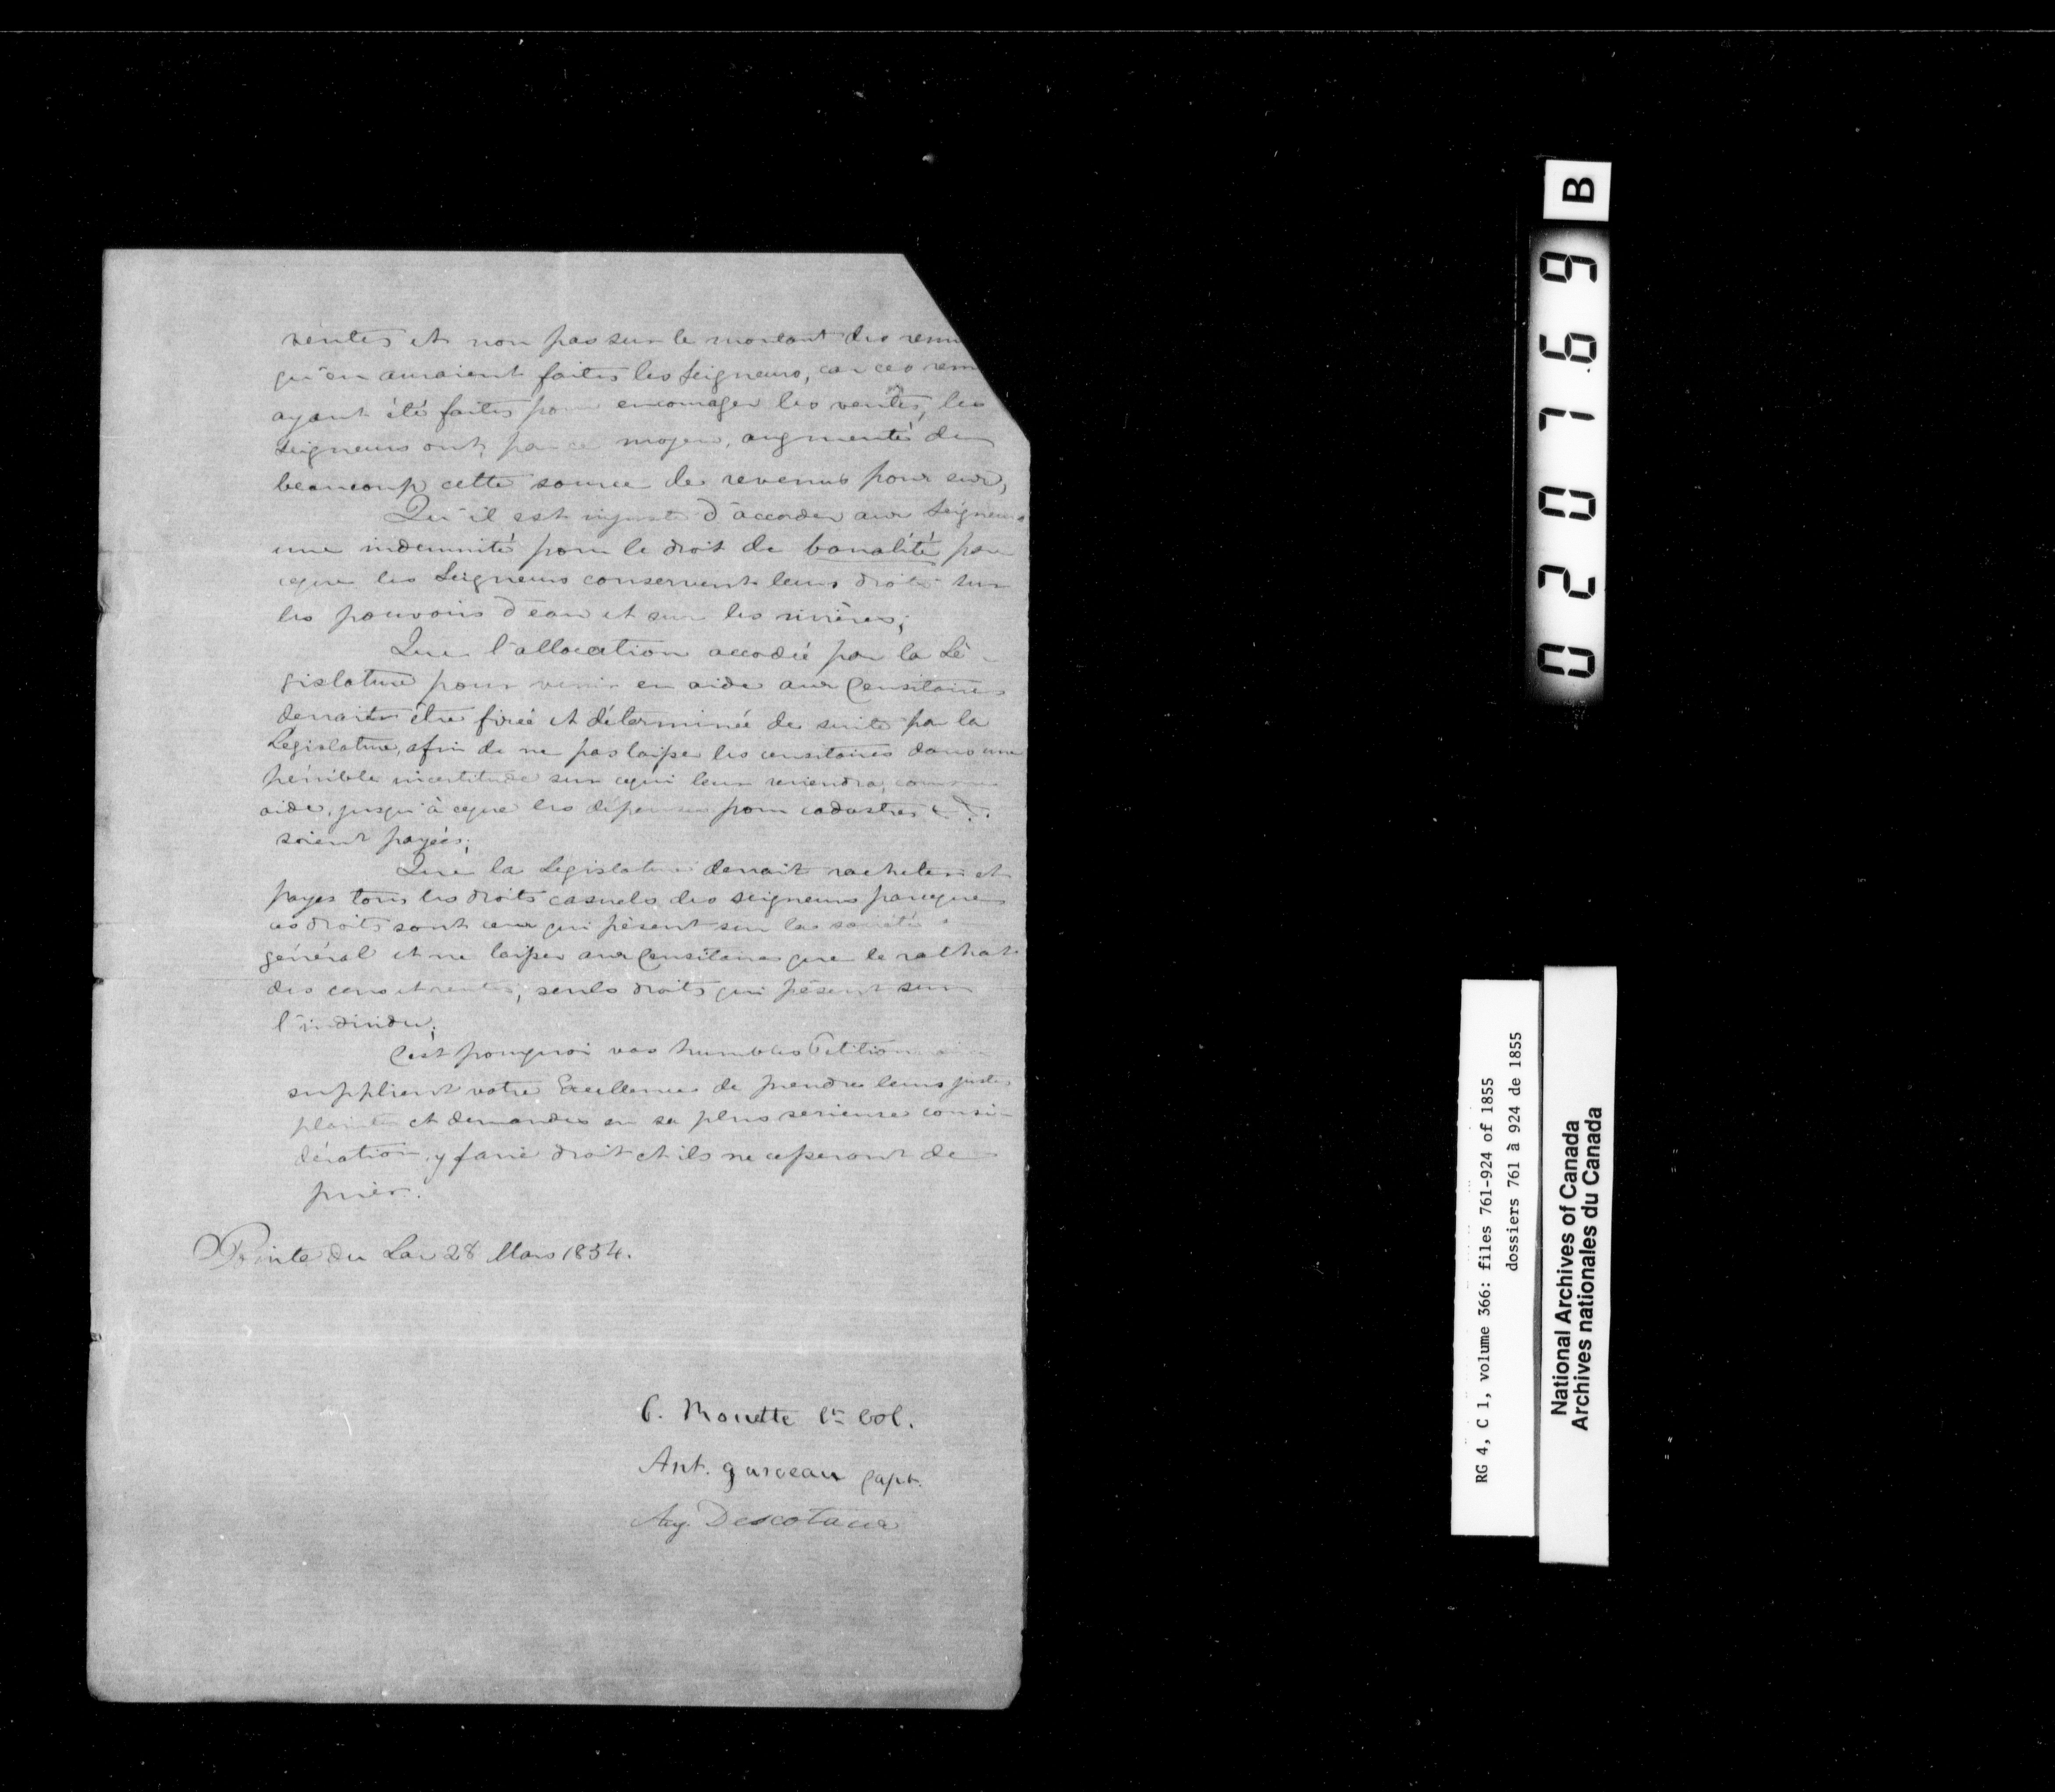 ventes et non pas sur le montant des remi
qu'en auraient faites les Seigneurs, car ces rem
ayant été faites pour encourager les ventes, les
Seigneurs ont, par ce moyen, augmenté de
beaucoup cette source de revenus pour eux,
Qu'il est injuste d'accorder aux Seigneurs
une indemnité pour le droit de banalité par
ceque les Seigneurs conservent leurs droits sur
les pouvoirs d'eau et sur les rivières;
Que l'allocation accordée par la Lé-
gislature pour venir en aide aux Censitaires
devrait être fixée et déterminée de suite par la
Législature, afin de ne pas laisser les censitaires dans une
pénible incertitude sur cequi leur reviendra, comme
aide, jusqu'à ceque les dépenses pour cadastres &c.
soient payées;
Que la Législature devrait racheter et
payer tous les droits casuels des seigneurs parceque
ces droits sont ceux qui pèsent sur la société
général et ne laisser aux Censitaires que le rachat
des cens et rentes, seuls droits qui pèsent sur
l'individu;
C'est pourquoi vos humbles Petitionnaires
supplient votre Excellence de prendre leurs justes
plaintes et demandes en sa plus serieuse consi-
dération, y faire droit et ils ne cesseront de
prier.
Pointe du Lac 28 Mars 1854.
C. Mouette Lt Col.
Ant. garceau Capt.
Aug. Descotaux
0 2 0 7 6 9 B
RG 4, C 1, volume 366: files 761-924 of 1855
dossiers 761 à 924 de 1855
National Archives of Canada
Archives nationales du Canada